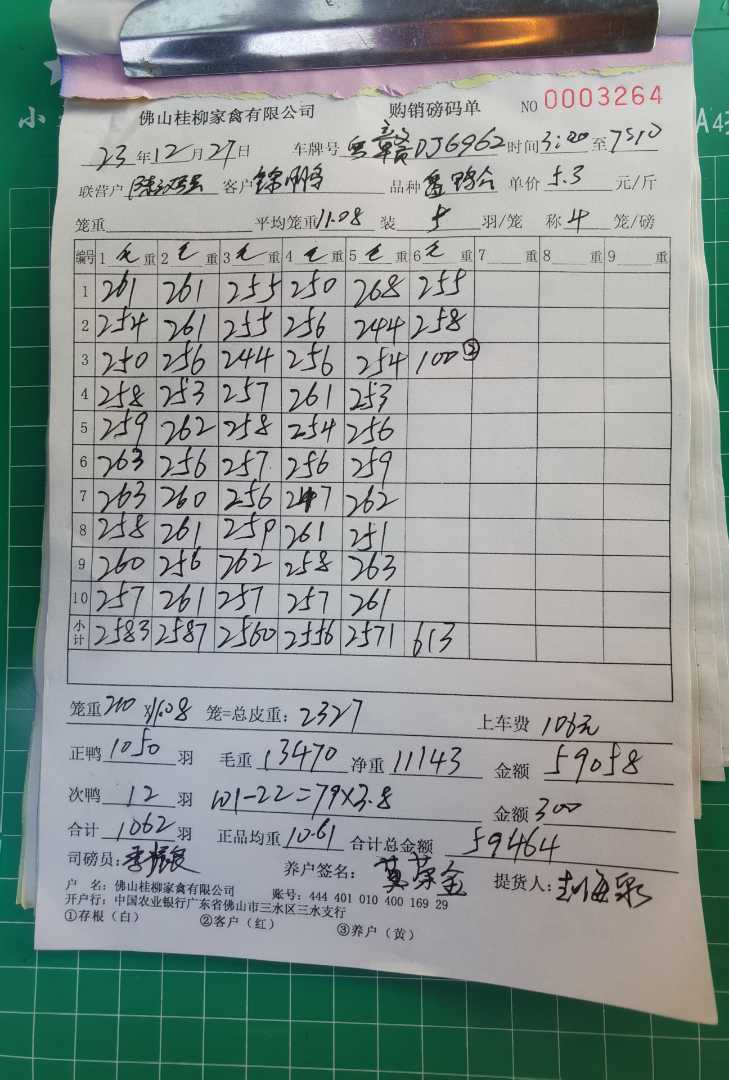 佛山桂柳家禽有限公司 购销磅码单 NO 0003264
23年12月27日 车牌号 粤 DJ6962 时间3:20至7510
联营户 客户 锦明 品种 番鸭公 单价 5.3 元/斤
笼重 平均笼重11.08 装 5 羽/笼 称 4 笼/磅
编号 1 毛 重 2 毛 重 3 毛 重 4 毛 重 5 毛 重 6 毛 重 7 重 8 重 9 重
1 261 261 255 250 268 255
2 254 261 255 256 244 258
3 250 256 244 256 254 100②
4 258 253 257 261 253
5 259 262 258 254 256
6 263 256 257 256 259
7 263 260 256 247 262
8 258 261 259 261 251
9 260 256 262 258 263
10 257 261 257 257 261
小计 2583 2587 2560 2556 2571 613
笼重 210 X11.08 笼=总皮重: 2327 上车费 106元
正鸭 1050 羽 毛重 13470 净重 11143 金额 59058
次鸭 12 羽 101-22=79×3.8 金额 300
合计 1062 羽 正品均重 10.61 合计总金额 59464
司磅员: 李振良 养户签名: 莫荣金 提货人:
户 名: 佛山桂柳家禽有限公司 账号: 444 401 010 400 169 29
开户行: 中国农业银行广东省佛山市三水区三水支行
①存根（白） ②客户（红） ③养户（黄）
小
A4